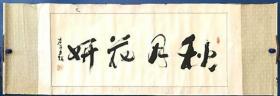 秋月花妍